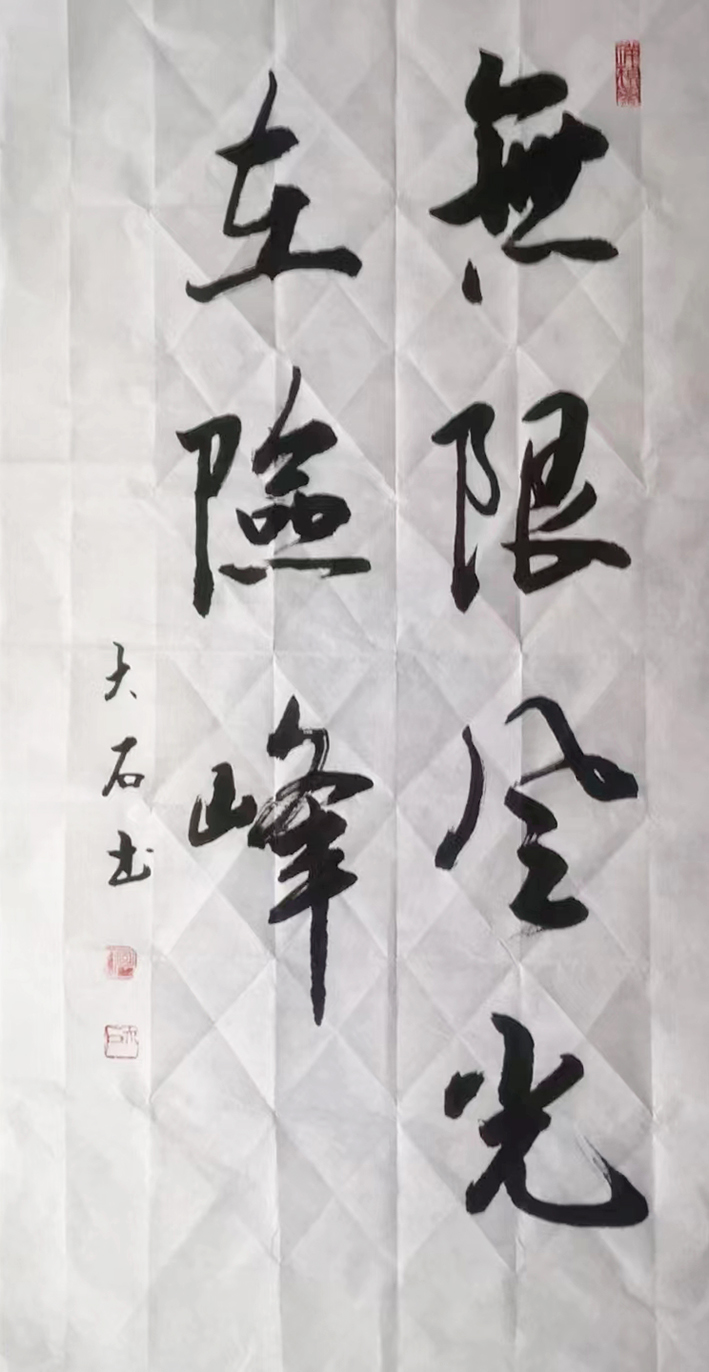 無限風光
在險峰
大石书